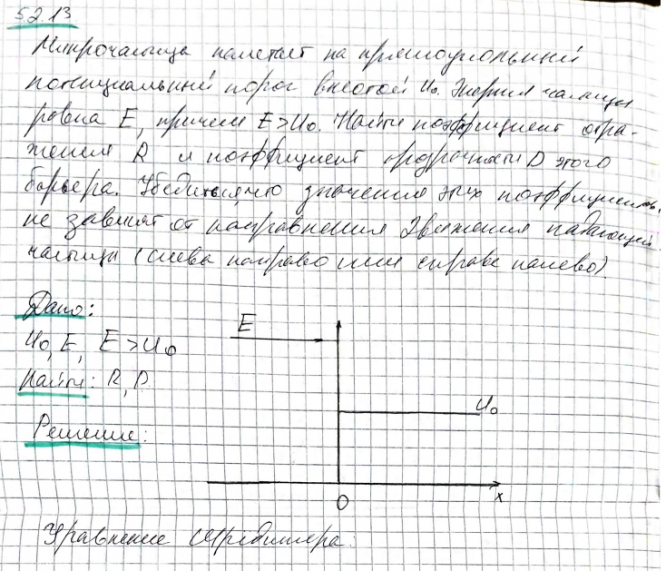 5.2.13
Микрочастица налетает на прямоугольный
потенциальный порог высотой U₀. Энергия частицы
равна E, причем E>U₀. Найти коэффициент отра-
жения R и коэффициент прозрачности D этого
барьера. Убедиться, что значения этих коэффициентов
не зависят от направления движения падающей
частицы (слева направо или справа налево).
Дано:
U₀, E, E>U₀
Найти: R, D
Решение:
E
U₀
0
x
Уравнение Шредингера: